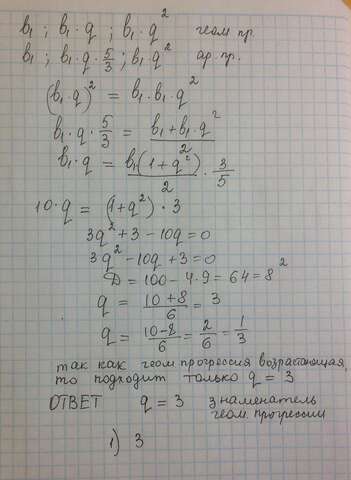 b₁ ; b₁·q ; b₁·q² геом пр.
b₁ ; b₁·q·5/3 ; b₁·q² ар. пр.
(b₁·q)² = b₁·b₁·q²
b₁·q·5/3 = (b₁+b₁·q²)/2
b₁·q = b₁(1+q²)/2 · 3/5
10·q = (1+q²)·3
3q²+3-10q=0
3q²-10q+3=0
D=100-4·9=64=8²
q = (10+8)/6 = 3
q = (10-8)/6 = 2/6 = 1/3
так как геом прогрессия возрастающая,
то подходит только q = 3
ОТВЕТ q = 3 знаменатель
геом. прогрессии
1) 3